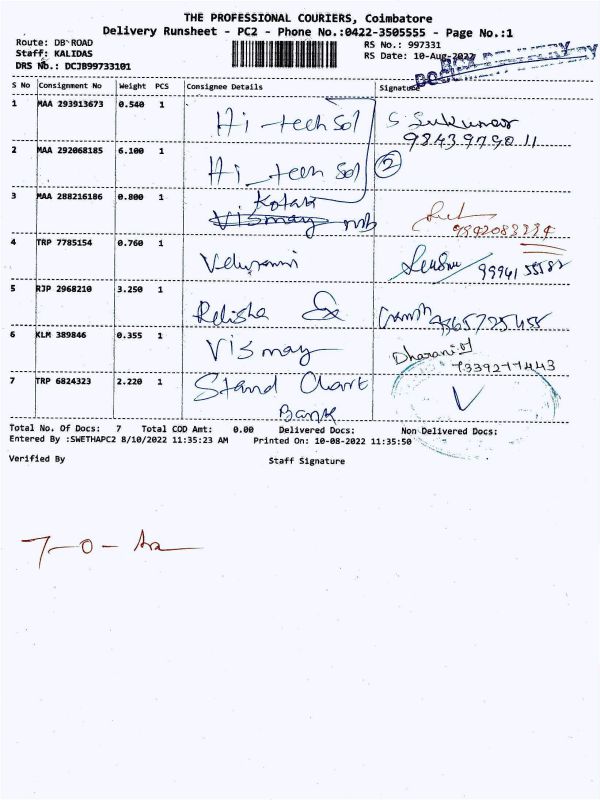 THE PROFESSIONAL COURIERS, Coimbatore
Delivery Runsheet - PC2 - Phone No.:0422-3505555 - Page No.:1
Route: DB ROAD
RS No.: 997331
Staff: KALIDAS
RS Date: 10-Aug-2022
DRS No.: DCJB99733101
BOX DELIVERY
DOCUMENT DELIVERY
S No Consignment No Weight PCS Consignee Details Signature
1 MAA 293913673 0.540 1 Hi-tech Sol S. Sukumar
9843979011
2 MAA 292068185 6.100 1 Hi-tech Sol 2
3 MAA 288216186 0.800 1 Kotak
Vismay mb
4 TRP 7785154 0.760 1 99941 55582
5 RJP 2968210 3.250 1 Relisha
6 KLM 389846 0.355 1 Vismay Dharani
7339277443
7 TRP 6824323 2.220 1 Stand Chart
Bank
Total No. Of Docs: 7 Total COD Amt: 0.00 Delivered Docs: Non Delivered Docs:
Entered By :SWETHAPC2 8/10/2022 11:35:23 AM Printed On: 10-08-2022 11:35:50
Verified By Staff Signature
7-0-